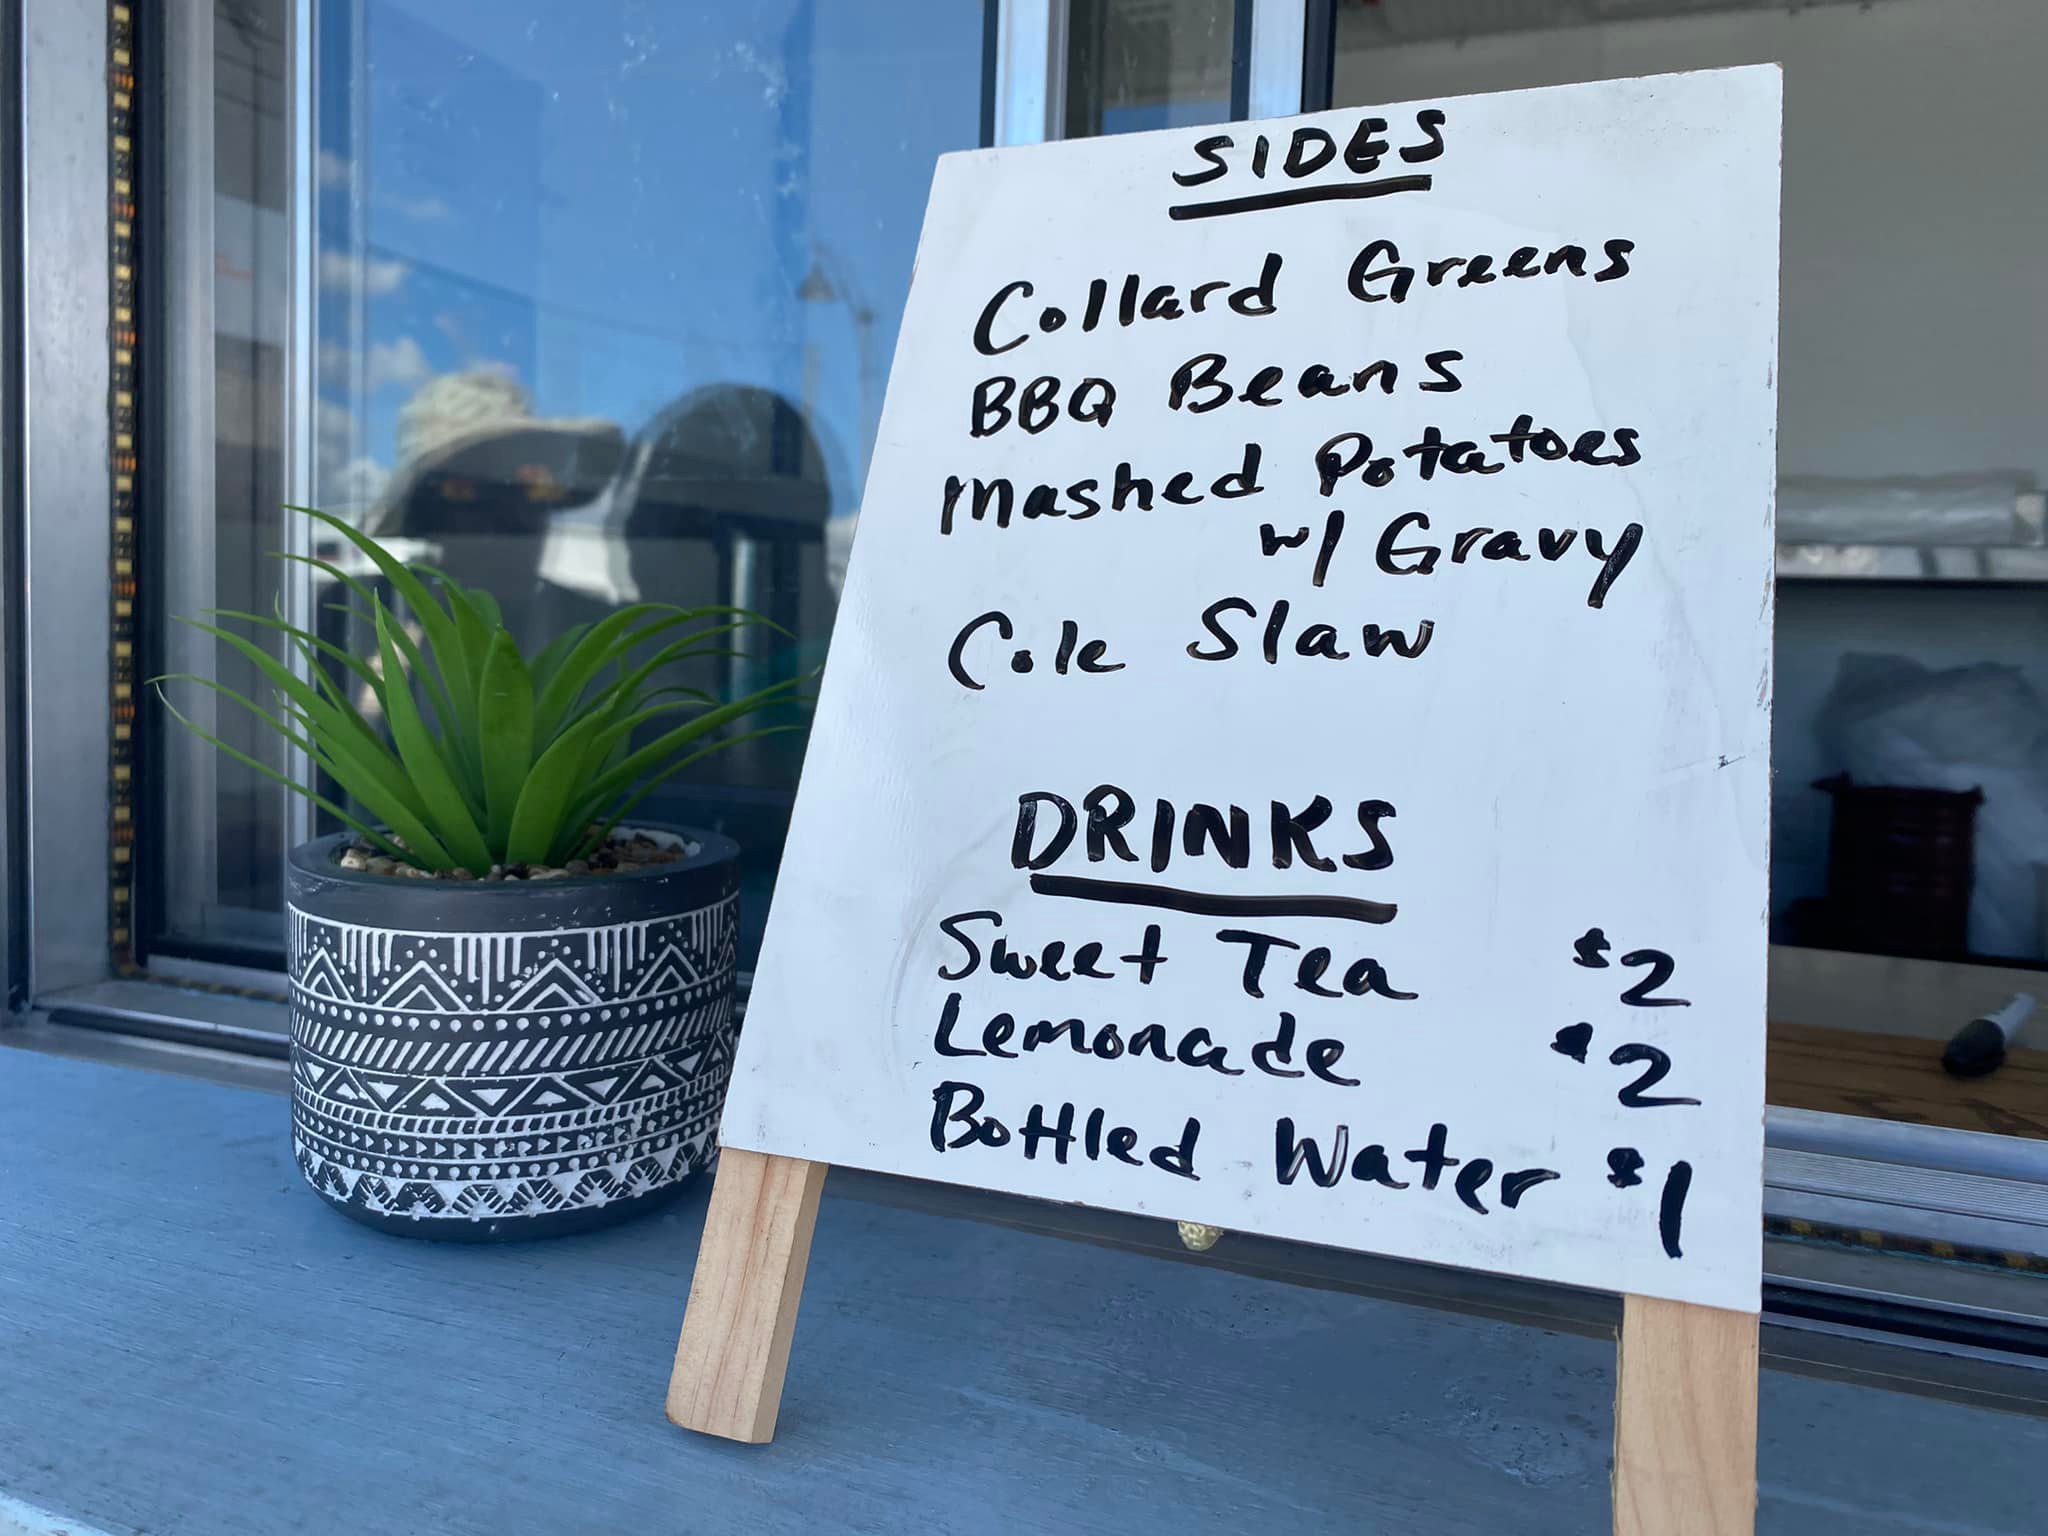 SIDES
Collard Greens
BBQ Beans
Mashed Potatoes
w/ Gravy
Cole Slaw
DRINKS
Sweet Tea $2
Lemonade $2
Bottled Water $1